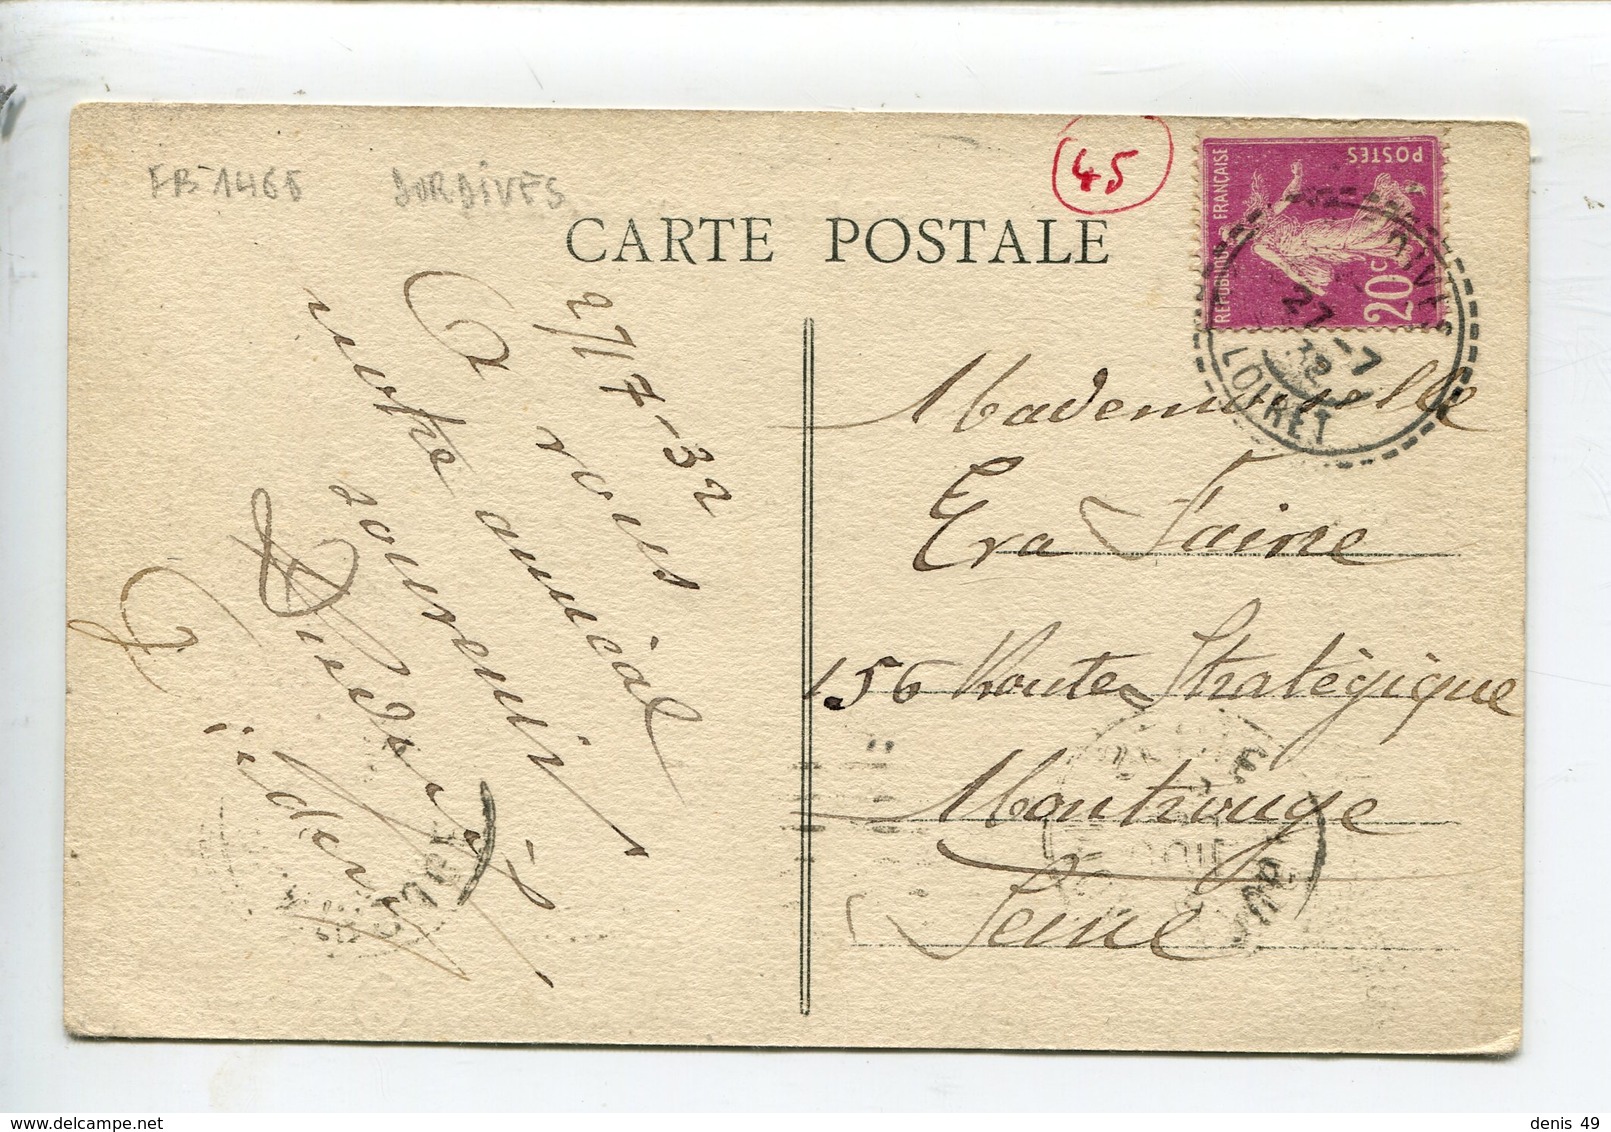 FB 1465 DORDIVES
45
CARTE POSTALE
REPUBLIQUE FRANÇAISE
POSTES
20c
DIVES
27-7
LOIRET
27/7-32
A vous
notre amical
souvenir
Mademoiselle
Eva Faine
156 Route Stratégique
Montrouge
Seine
denis 49